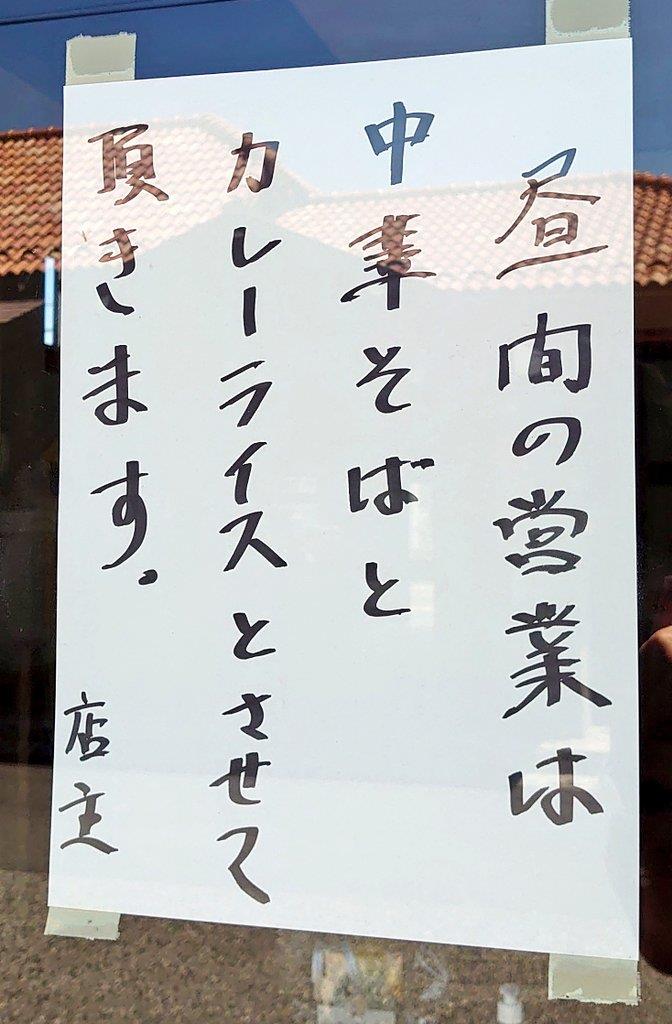 昼間の営業は
中華そばと
カレーライスとさせて
頂きます。
店主